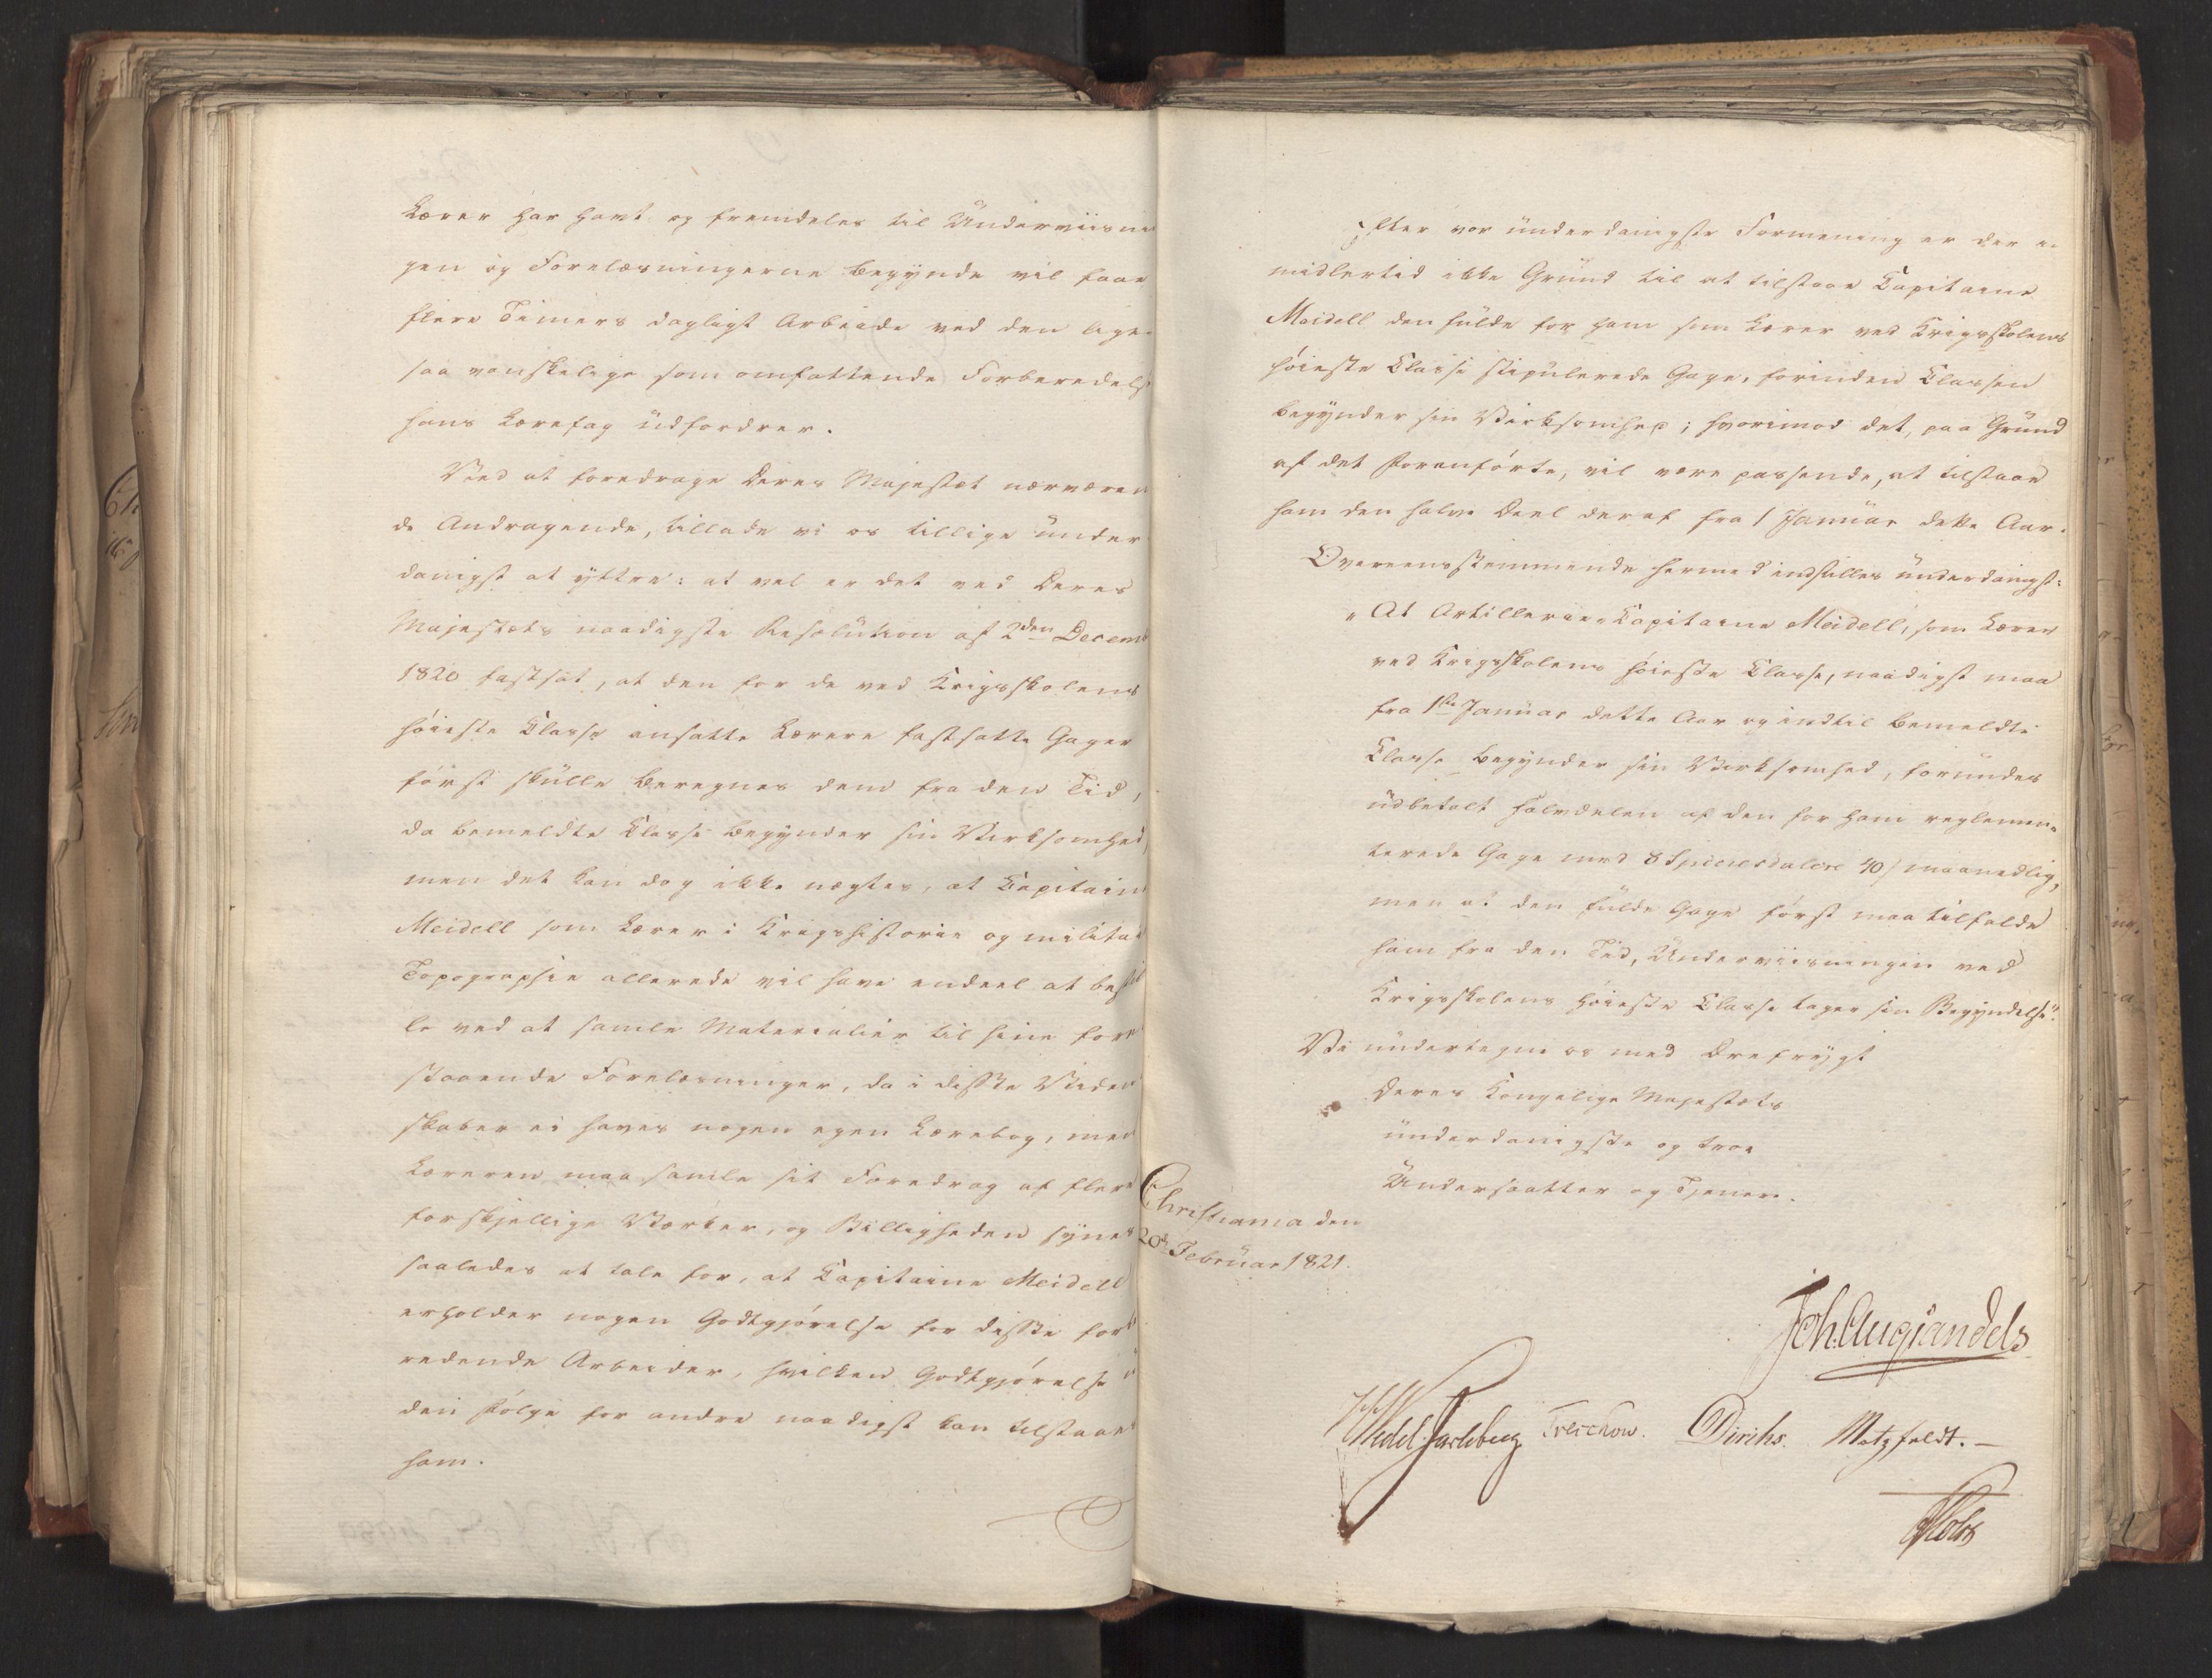 Lærer har havt og fremdeles til Underviisnin
gen og Forelæsningerne begynde vil faae
flere Timers dagligt Arbeide ved den lige
saa vanskelige som omfattende Forberedelse
hans Lærefag udfordrer.
Ved at foredrage Deres Majestæt nærværen
de Andragende, tillade vi os tillige under
danigst at yttre: at vel er det ved Deres
Majestæts naadigste Resolution af 2den Decemb
1820 fastsat, at den for de ved Krigsskolens
høieste Classe ansatte Lærere fastsatte Gager
først skulle beregnes dem fra den Tid,
da bemeldte Classe begynder sin Virksomhed,
men det kan dog ikke nægtes, at Capitain
Meidell som Lærer i Krigshistorie og militai
Topographie allerede vil have endeel at bestil
le ved at samle Materialier til sine fore
staaende Forelæsninger, da i disse Viden
skaber ei haves nogen egen Lærebog, men
Læreren maa samle sit Foredrag af flere
forskjellige Værker, og Billigheden synes
saaledes at tale for, at Capitaine Meidell
erholder nogen Godtgjørelse for disse forbe
redende Arbeider, hvilken Godtgjørelse i
den Følge for andre naadigst kan tilstaaes
ham.
Efter vor underdanigste Formening er der i
midlertid ikke Grund til at tilstaae Capitaine
Meidell den fulde for ham som Lærer ved Krigsskolens
høieste Classe stipulerede Gage, forinden Classen
begynder sin Virksomhed; hvorimod det, paa Grund
af det Foranførte, vil være passende, at tilstaae
ham den halve Deel deraf fra 1 Januar dette Aar.
Overeensstemmende hermed indstilles underdanigst:
"At Artillerie-Capitaine Meidell, som Lærer
ved Krigsskolens høieste Classe, naadigst maa
fra 1ste Januar dette Aar og indtil bemeldte
Classe begynder sin Virksomhed, forundes
udbetalt Halvdelen af den for ham reglemen-
terede Gage med 8 Speciesdalere 40 s maanedlig,
men at den fulde Gage først maa tilfalde
ham fra den Tid, Underviisningen ved
Krigsskolens høieste Classe tager sin Begyndelse".
Vi undertegne os med Ærefrygt
Deres Kongelige Majestæts
underdanigste og troe
Undersaatter og Tjenere.
Christiania den
20de Februar 1821.
Joh. Aug Sandels
HWedel Jarlsberg Treschow. Diriks. Motzfeldt.
Holst